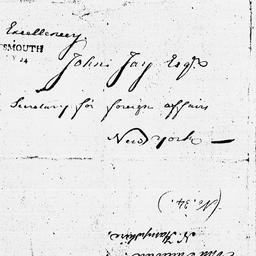 Excellency
SMOUTH
Y 24
John Jay Esqr
Secretary for foreign affairs
New York —
(No. 34.)
N. Hampshire.